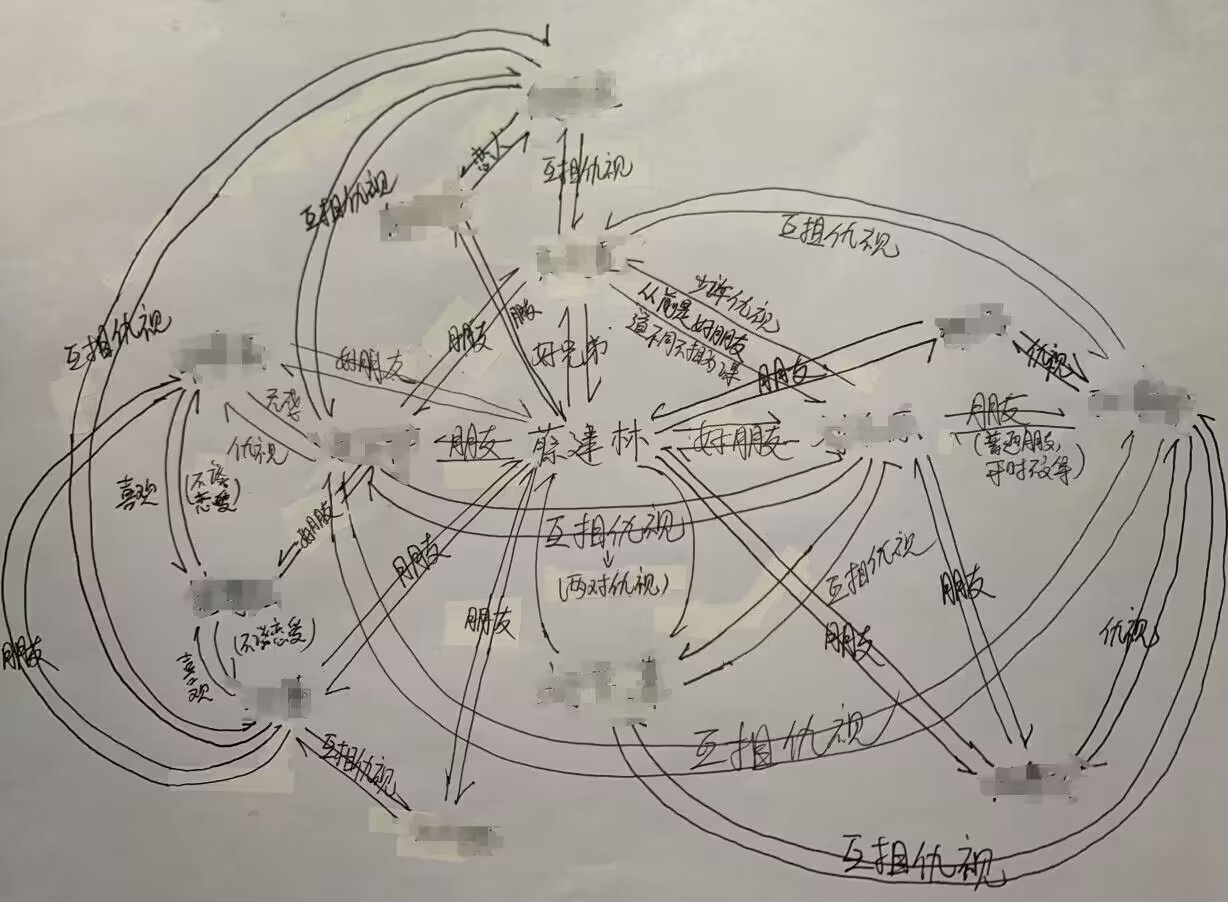 恋人
互相仇视
互相仇视
互相仇视
少许仇视
从前是好朋友
道不同不相为谋
互相仇视
好朋友
朋友
朋友
好兄弟
朋友
仇视
无感
仇视
朋友
蔡建林
好朋友
朋友
(普通朋友,
喜欢
(不谈
恋爱)
好朋友
朋友
互相仇视
(两对仇视)
互相仇视
朋友
朋友
喜欢
(不谈恋爱)
朋友
朋友
仇视
互相仇视
互相仇视
互相仇视